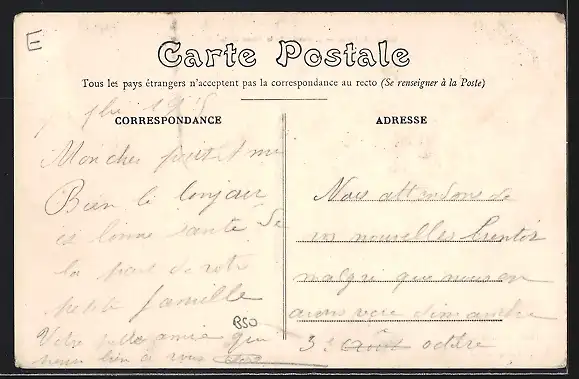 E
Carte Postale
Tous les pays étrangers n'acceptent pas la correspondance au recto (Se renseigner à la Poste)
CORRESPONDANCE
ADRESSE
Mon cher petit
Bien le bonjour
et bonne santé de
la part de
petite famille
Votre amie qui
bien à vous
BSO
Nous attendons de
vos nouvelles bientôt
malgré que nous en
avons dimanche
3 août octobre